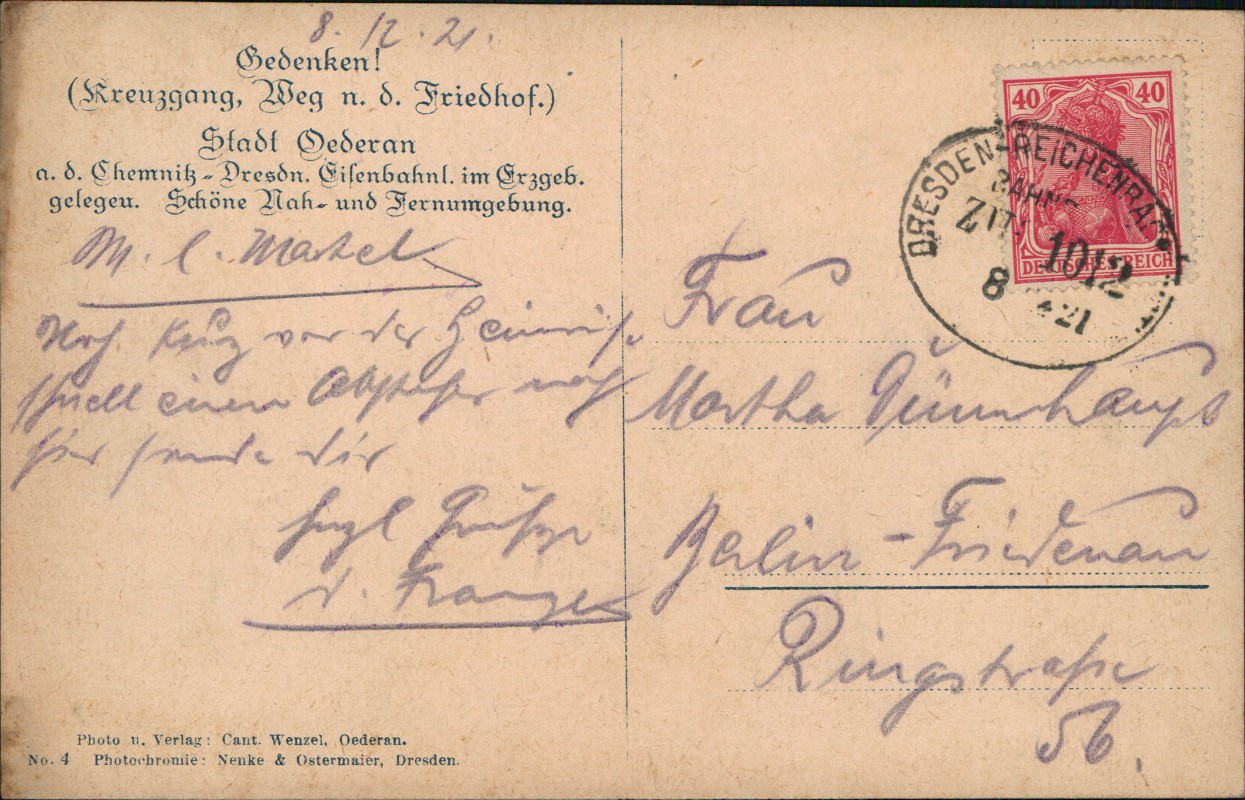 8. 12. 21.
Gedenken!
(Kreuzgang, Weg n. d. Friedhof.)
Stadt Oederan
a. d. Chemnitz-Dresdn. Eisenbahnl. im Erzgeb.
gelegen. Schöne Nah- und Fernumgebung.
M. l.
Noch kurz vor der Heimreise
schnell einen Abstecher nach
hier sende dir
herzl Grüße
d.
Photo u. Verlag: Cant. Wenzel, Oederan.
No. 4 Photochromie: Nenke & Ostermaier, Dresden.
40 40
DEUTSCHES REICH
DRESDEN-REICHENBACH
BAHNP
ZUG 1012
8 12 21
Frau
Martha Dünnhaupt
Berlin-Friedenau
Ringstraße
56.